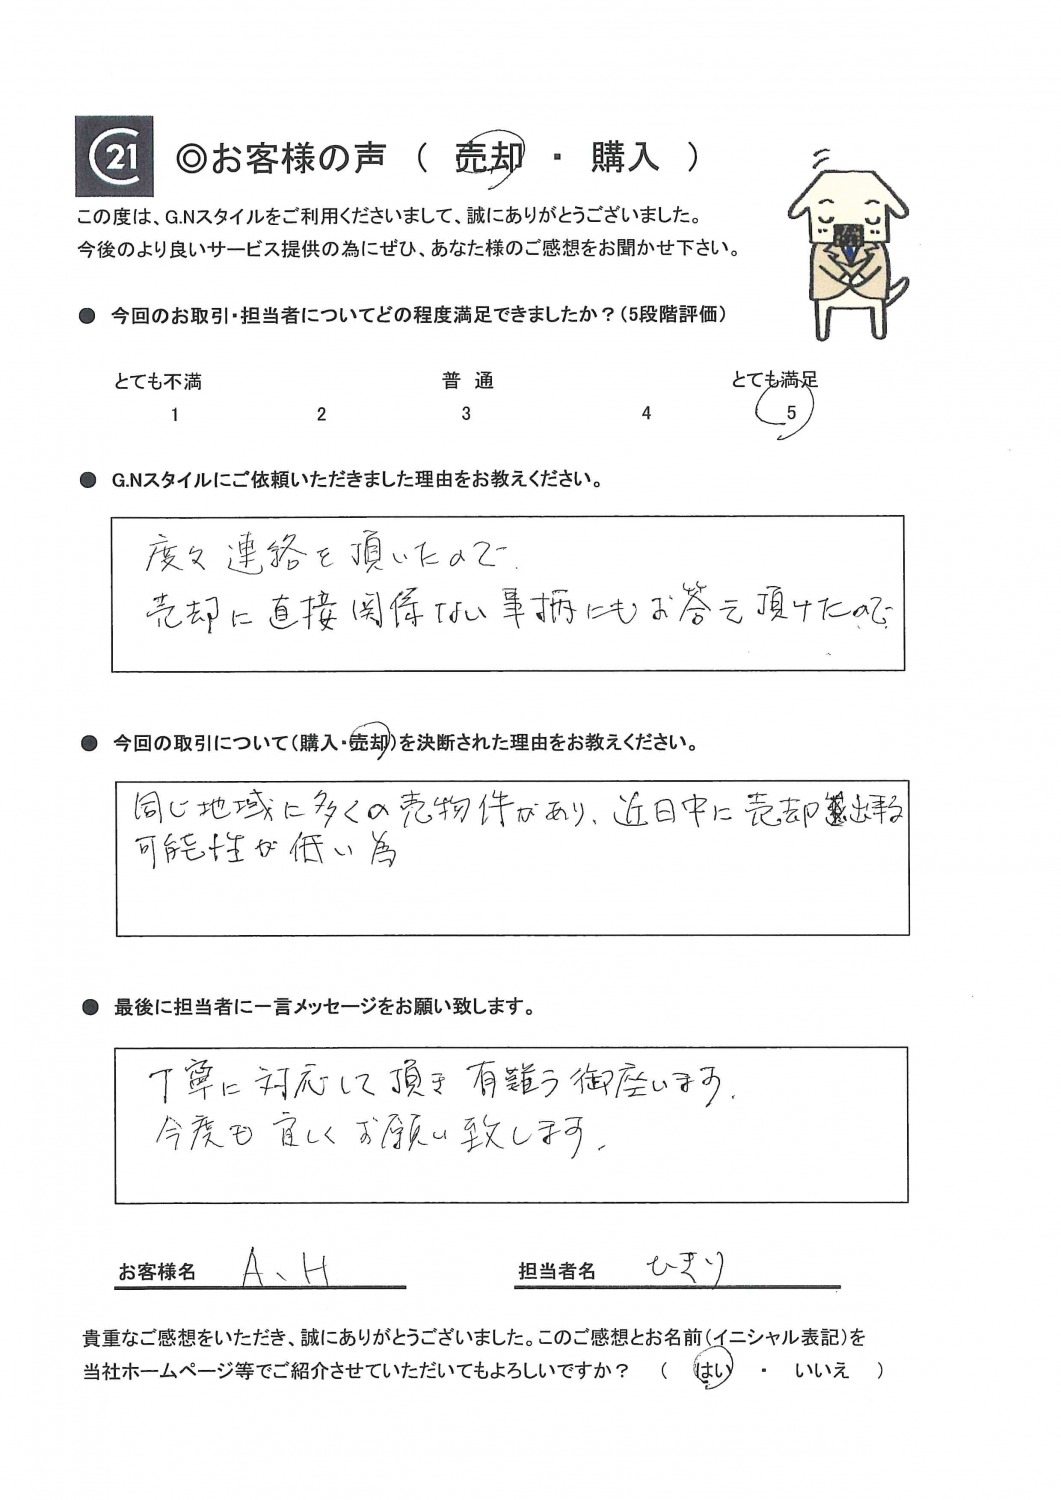 C21
◎お客様の声 （ 売却 ・ 購入 ）
この度は、G.Nスタイルをご利用くださいまして、誠にありがとうございました。
今後のより良いサービス提供の為にぜひ、あなた様のご感想をお聞かせ下さい。
● 今回のお取引・担当者についてどの程度満足できましたか？（5段階評価）
とても不満 普 通 とても満足
1 2 3 4 5
● G.Nスタイルにご依頼いただきました理由をお教えください。
度々連絡を頂いたので.
売却に直接関係ない事柄にもお答え頂けたので.
● 今回の取引について（購入・売却）を決断された理由をお教えください。
同じ地域に多くの売物件があり、近日中に売却出来る
可能性が低い為
● 最後に担当者に一言メッセージをお願い致します。
丁寧に対応して頂き有難う御座います.
今度も宜しくお願い致します.
お客様名 A、H 担当者名
貴重なご感想をいただき、誠にありがとうございました。このご感想とお名前（イニシャル表記）を
当社ホームページ等でご紹介させていただいてもよろしいですか？ （ はい ・ いいえ ）